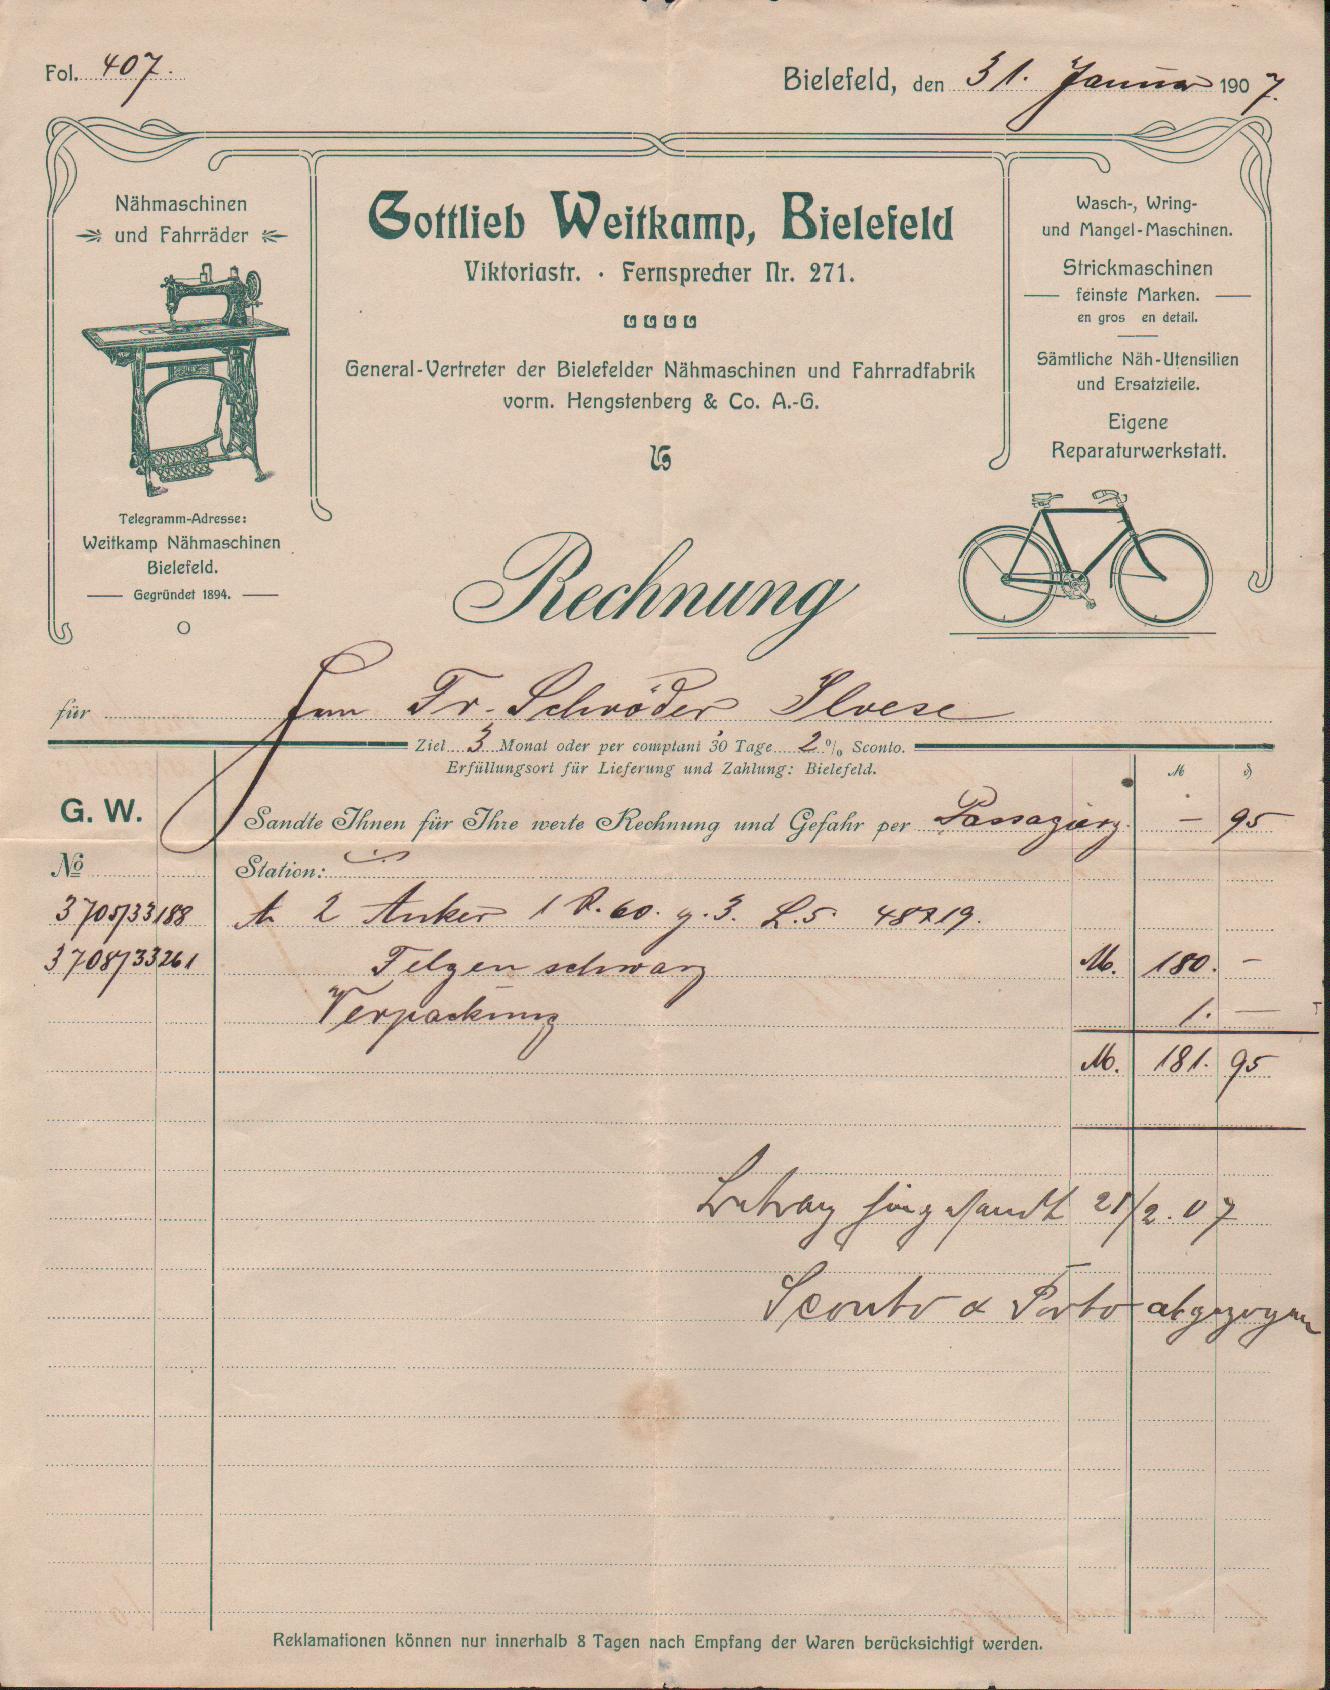 Fol. 407.
Bielefeld, den 31. Januar 1907.
Nähmaschinen
und Fahrräder
Telegramm-Adresse:
Weitkamp Nähmaschinen
Bielefeld.
Gegründet 1894.
Gottlieb Weitkamp, Bielefeld
Viktoriastr. · Fernsprecher Nr. 271.
General-Vertreter der Bielefelder Nähmaschinen und Fahrradfabrik
vorm. Hengstenberg & Co. A.-G.
Wasch-, Wring-
und Mangel-Maschinen.
Strickmaschinen
feinste Marken.
en gros en detail.
Sämtliche Näh-Utensilien
und Ersatzteile.
Eigene
Reparaturwerkstatt.
Rechnung
für Herrn Fr. Schröder Ilvese
Ziel 3 Monat oder per comptant 30 Tage 2% Sconto.
Erfüllungsort für Lieferung und Zahlung: Bielefeld.
M ₰
G. W.
Sandte Ihnen für Ihre werte Rechnung und Gefahr per Passagierg. — 95
No Station:
3705/33188 2 Anker 1 R. 60. g. 3. L. 5.
3708/33261 Felgen schwarz M. 180. —
Verpackung 1. —
M. 181. 95
Betrag hingesandt 21/2. 07
Sconto & Porto abgezogen
Reklamationen können nur innerhalb 8 Tagen nach Empfang der Waren berücksichtigt werden.